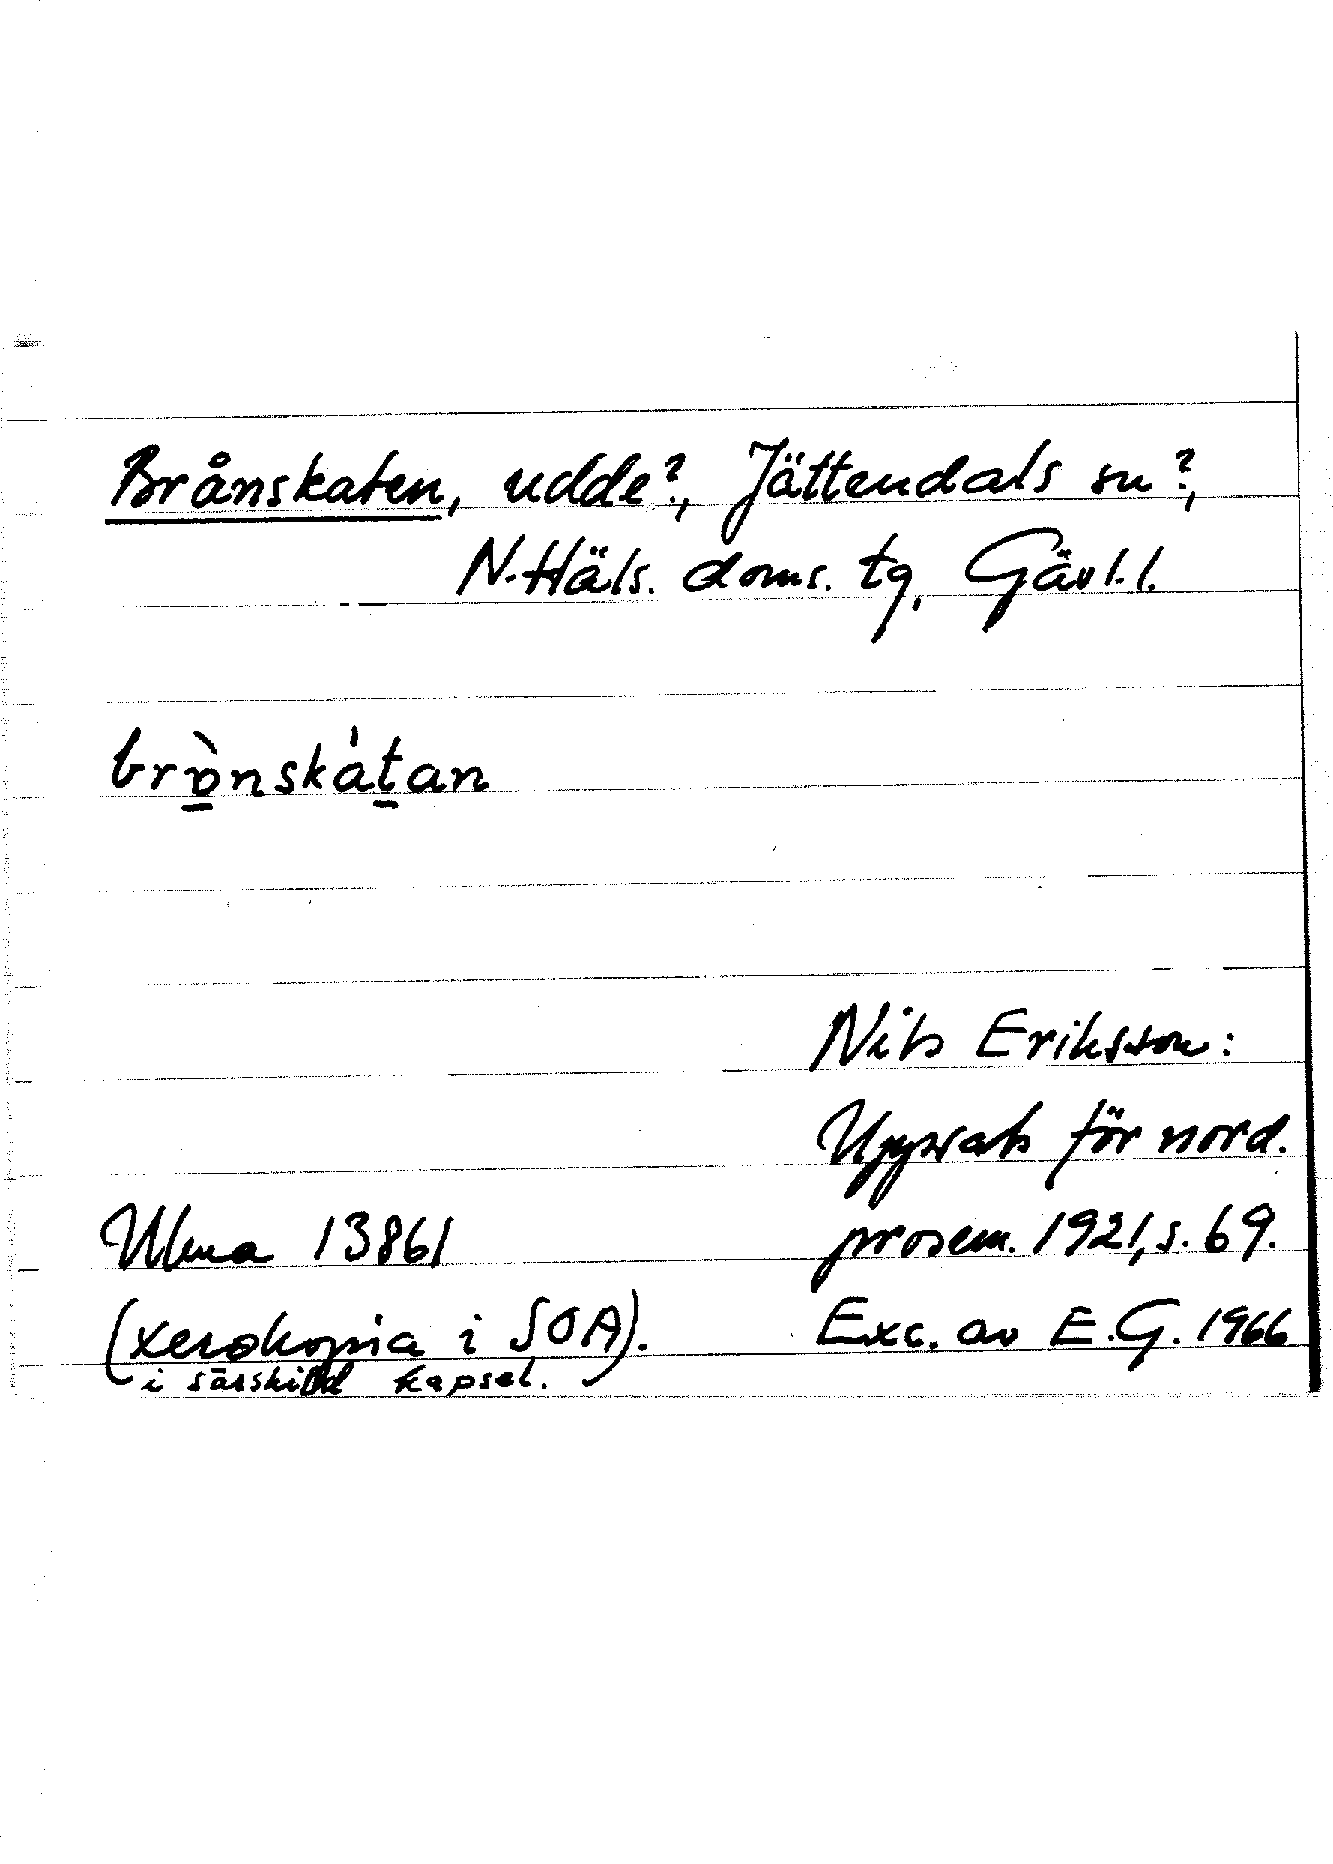 Brånskaten, udde?, Jättendals sn?,
N. Häls. doms. tg, Gävl. l.
brò̱nskát̠an
Nils Eriksson:
Uppsats för nord.
Ulma 13861 prosem. 1921, s. 69.
(xerokopia i SOA). Exc. av E.G. 1966
i särskild kapsel.